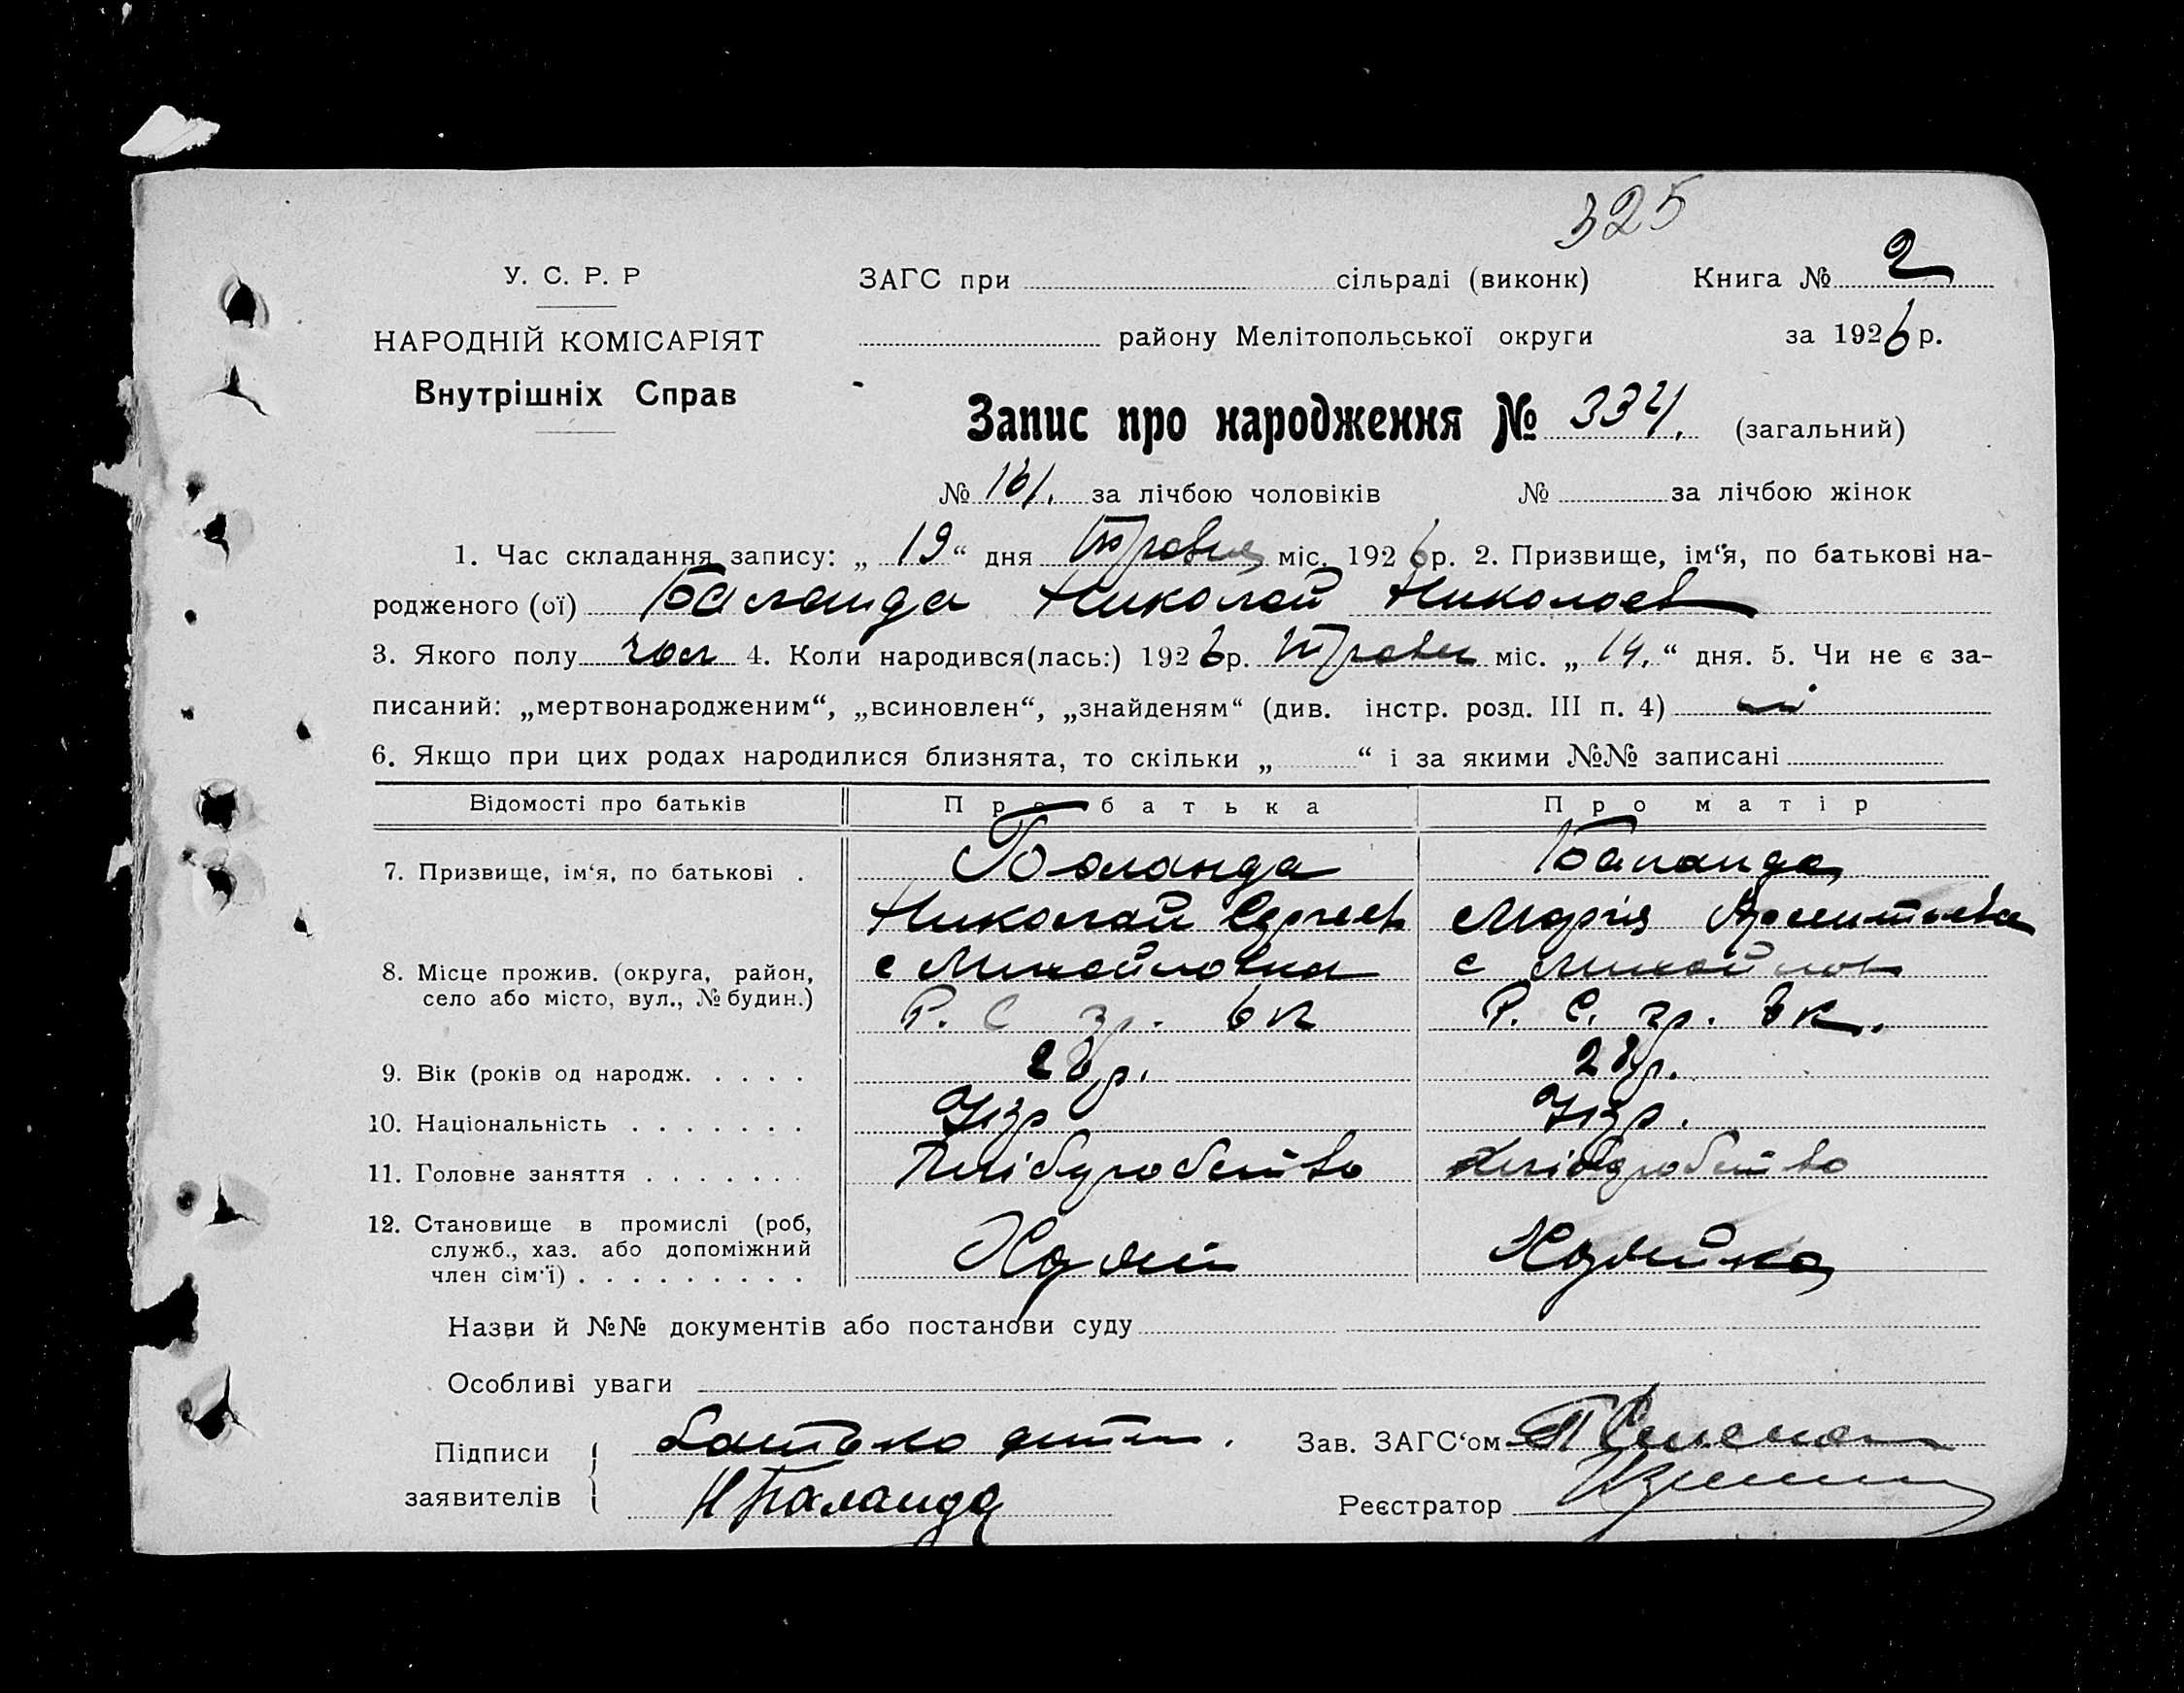 325
У. С. Р. Р
ЗАГС при сільраді (виконк) Книга № 2
НАРОДНІЙ КОМІСАРІЯТ
району Мелітопольської округи за 1926 р.
Внутрішніх Справ
Запис про народження № 334. (загальний)
№ 161. за лічбою чоловіків № за лічбою жінок
1. Час складання запису: „ 19 “ дня Травня міс. 1926 р. 2. Призвище, ім‘я, по батькові на-
родженого (ої) Баланда Николай Николаев
3. Якого полу чол 4. Коли народився(лась:) 1926 р. Травн міс. „ 14. “ дня. 5. Чи не є за-
писаний: „мертвонародженим“, „всиновлен“, „знайденям“ (див. інстр. розд. III п. 4) ні
6. Якщо при цих родах народилися близнята, то скільки „ “ і за якими №№ записані
Відомості про батьків Про батька Про матір
7. Призвище, ім‘я, по батькові . Баланда Баланда
Николай Сергеев Марія
8. Місце прожив. (округа, район, с Михайловка с Михайлов
село або місто, вул., № будин.)
Р. С. гр. вк Р. С. гр. вк.
9. Вік (років од народж. . . . . 28 р. 28 р.
10. Національність . . . . . . . Укр Укр.
11. Головне заняття . . . . . . . Хліборобство Хліборобство
12. Становище в промислі (роб,
служб., хаз. або допоміжний Хазяин Хазяйка
член сім‘ї) . . . . . . . . .
Назви й №№ документів або постанови суду
Особливі уваги
Підписи батько дитини. Зав. ЗАГС‘ом
заявителів Н Баланда Реєстратор